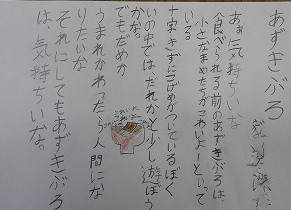 あずきぶろ
あぁ気持ちいな
食べられる前のあずきぶろは、
小さなまめたちがこわいよーといって
いる
十字きずがつけめがついているぼく
いの中では、だれかと少し遊ぼう
かな。
でもだめか
うまれかわったら人間にな
りたいな
それにしてもあずきぶろ
は、気持ちいな。